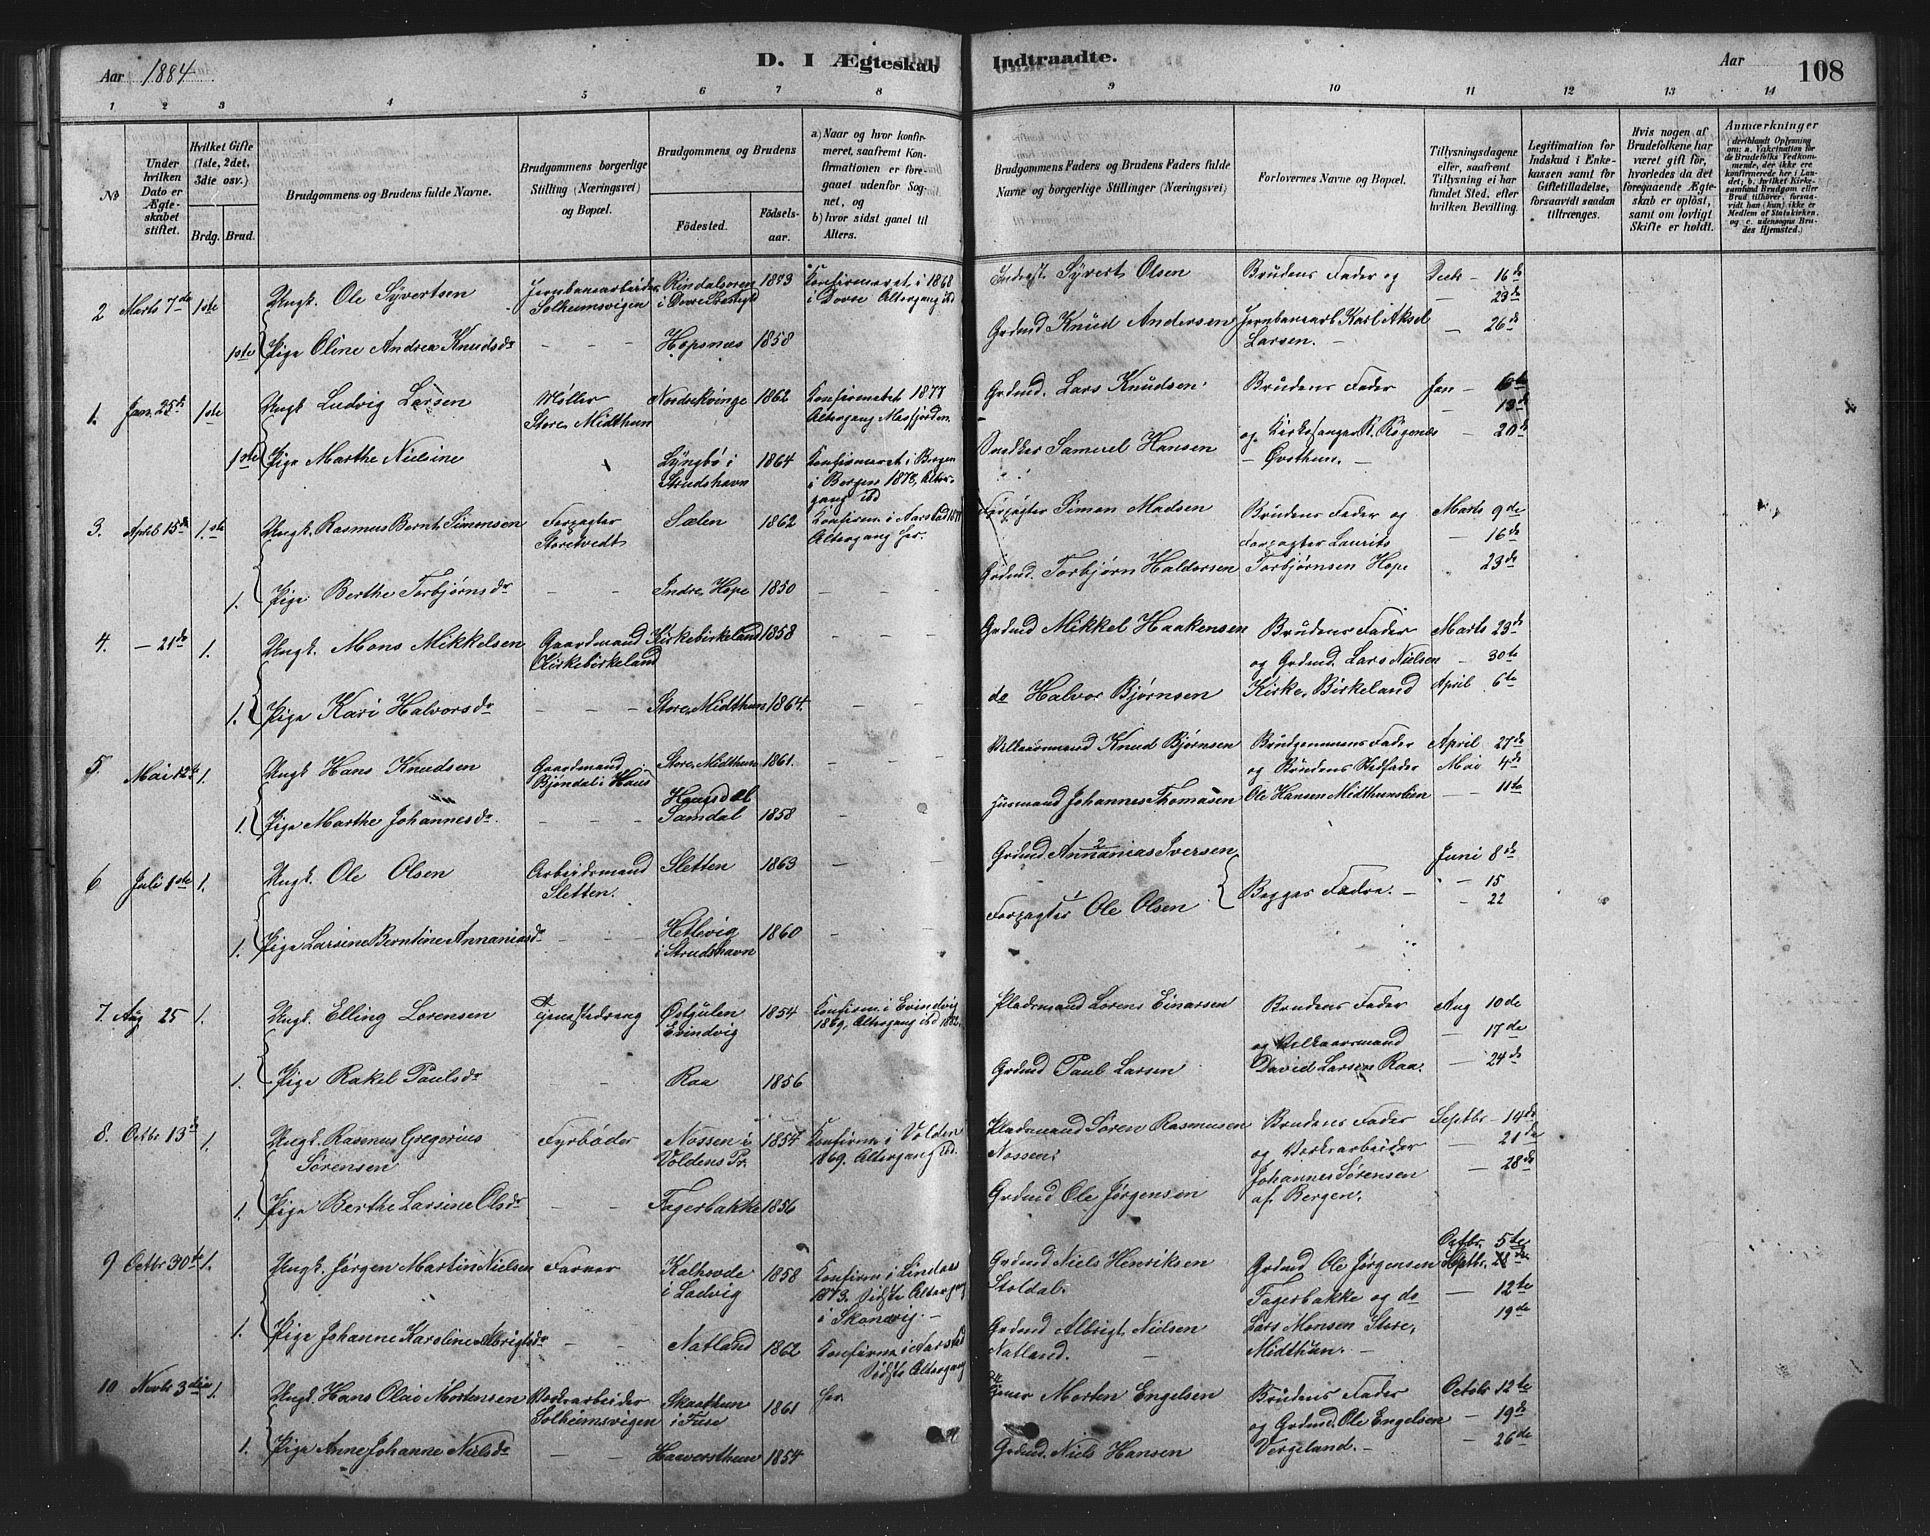 Aar 1884
D. I Ægteskab Indtraadte.
Aar
108
1 2 3 4 5 6 7 8 9 10 11 12 13 14
№
Under hvilken Dato er Ægteskabet stiftet.
Hvilket Gifte (1ste, 2det, 3die osv.)
Brdg. Brud.
Brudgommens og Brudens fulde Navne.
Brudgommens borgerlige Stilling (Næringsvei) og Bopæl.
Brudgommens og Brudens
Fødested.
Fødselsaar.
a) Naar og hvor konfirmeret, saafremt Konfirmationen er foregaaet udenfor Sognet, og
b) hvor sidst ganet til Alters.
Brudgommens Faders og Brudens Faders fulde Navne og borgerlige Stillinger (Næringsvei)
Forlovernes Navne og Bopæl.
Tillysningsdagene eller, saafremt Tillysning ei har fundet Sted, efter hvilken Bevilling.
Legitimation for Indskud i Enkekassen samt for Giftetilladelse, forsaavidt saadan tiltrænges.
Hvis nogen af Brudefolkene har været gift før, hvorledes da det foregaaende Ægteskab er opløst, samt om lovligt Skifte er holdt.
Anmærkninger
(deriblandt Oplysning om: a. Vakcination for de Brudefolks Vedkommende, der ikke ere konfirmerede her i Landet; b. hvilket Kirkesamfund Brudgom eller Brud tilhører, forsaavidt han (hun) ikke er Medlem af Statskirken, og c. udensogns Brudes Hjemsted.)
2 Marts 7de 1ste Ungk. Ole Syvertsen Jernbanearbeider Solheimsvigen Rindalsoren i Dovre 1843 Konfirmeret i 1868 i Dovre Altergang ibd Syvert Olsen Brudens Fader og 16de
23de
1ste Pige Oline Andrea Knudsdr – – – Hopsnæs 1858 Grdmd Knud Andersen Jernbanearb Karl Aksel Larsen. – 26de
1. Jan. 25de 1ste Ungk Ludvig Larsen Møller Store Midthun Nordrekvinge 1862 Konfirmeret 1877 Altergang Masfjorden. Grdmd. Lars Knudsen. Brudens Fader Jan – 6te
13de
1ste Pige Marthe Nielsine Lyngbø i Strudshavn 1864 Konfirmeret i Bergen i Bergen 1878, Altergang ibd Snedker Samuel Hansen og Kirkesanger R. Røgenæs – Øvsthun. – 20de
3. April 15de 1.ste Ungk. Rasmus Bernt Simensen Forpagter Storetvedt Sælen 1862 Konfirm. i Aarstad 1877 Altergang her. Forpagter Simon Madsen Brudens Fader og Forpagter Laurits Marts 9de
– 16de
1. Pige Berthe Torbjørnsdr – – – Indre Hope 1850 – – – Grdmd. Torbjørn Haldorsen Torbjørnsen Hope – 23de
4. – 21de 1. Ungk. Mons Mikkelsen Gaardmand Kirkebirkeland Kirkebirkeland 1858 – – – Grdmd Mikkel Haakensen Brudens Fader og Grdmd. Lars Nielsen Marts 23de
– 30te
1. Pige Kari Halvorsdr – – – Store Midthun 1864. – – do Halvor Bjørnsen Kirke, Birkeland April 6te
5. Mai 12te 1. Ungk Hans Knudsen Gaardmand Bjøndal i Haus Store Midthun 1861. – – – Vilkaarsmand Knud Bjørnsen Brudgommens Fader og Brudens Stedfader April 27de
Mai 4de
1. Pige Marthe Johannesdr. Haugsdal Samdal 1858 – – Husmand Johannes Thomasen Ole Hansen Midthunslien – – 11te
6 Juli 1ste 1. Ungk. Ole Olsen Arbeidsmand Sletten. Sletten 1863 – – Grdmd Annanias Iversen Begges Fædre. – Juni 8de
– 15
– 22
Forpagter Ole Olsen
1. Pige Larsine Berntine Annaniasdr – – – Hetlevig i Strudshavn 1860
7. Aug 25 1. Ungk. Elling Lorensen Tjenestedreng Østgulen Evindvig 1854 Konfirm. i Evindvig 1869, Altergang ibd 1882. Pladsmand Lorens Einarsen Brudens Fader Aug 10de
– 17de
1. Pige Rakel Paulsdr – Raa 1856 Grdmd Paul Larsen og Vilkaarsmand David Larsen Raa. – 24de
8. Octbr 13de 1. Ungk. Rasmus Gregorius Sørensen Fyrbøder Nossen i Voldens Pr. 1854 Konfirm. i Volden 1869. Altergang ibd. Pladsmand Søren Rasmusen Nossen; Brudens Fader og Værkarbeider Johannes Sørensen af Bergen. Septbr – 14de
– 21de
– 28de
1. Pige Berthe Larsine Olsdr – – Fagerbakke 1856 Grdmd Ole Jørgensen
9 Octbr 30te 1. Ungk. Jørgen Martin Nielsen Farver Kalhovde i Ladvig 1858 Konfirm i Lindaas 1873. Sidste Altergang i Skonevig. – Grdmd Niels Henriksen Stoldal. Grdmd Ole Jørgensen Fagerbakke og do Octbr. 5te
Septbr. 28de
– 12te
– 19de
1. Pige Johanne Karoline Albrigtsdr – – Natland 1862 Konfirm. i Aarstad Sidste Altergang her. Grdmd Albrigt Nielsen Natland. – Lars Monsen Store, Midthun. –
10 Novbr 3die 1. Ungk. Hans Olai Mortensen Værkarbeider Solheimsvigen Skaathun i Fuse 1861 Morten Engelsen Brudens Fader og Grdmd. Ole Engelsen Vergeland. – Octobr 12te
– 19de
– 26de
1. Pige Anne Johanne Nielsdr – – Haaversthun 1854 Grdmd. Niels Hansen